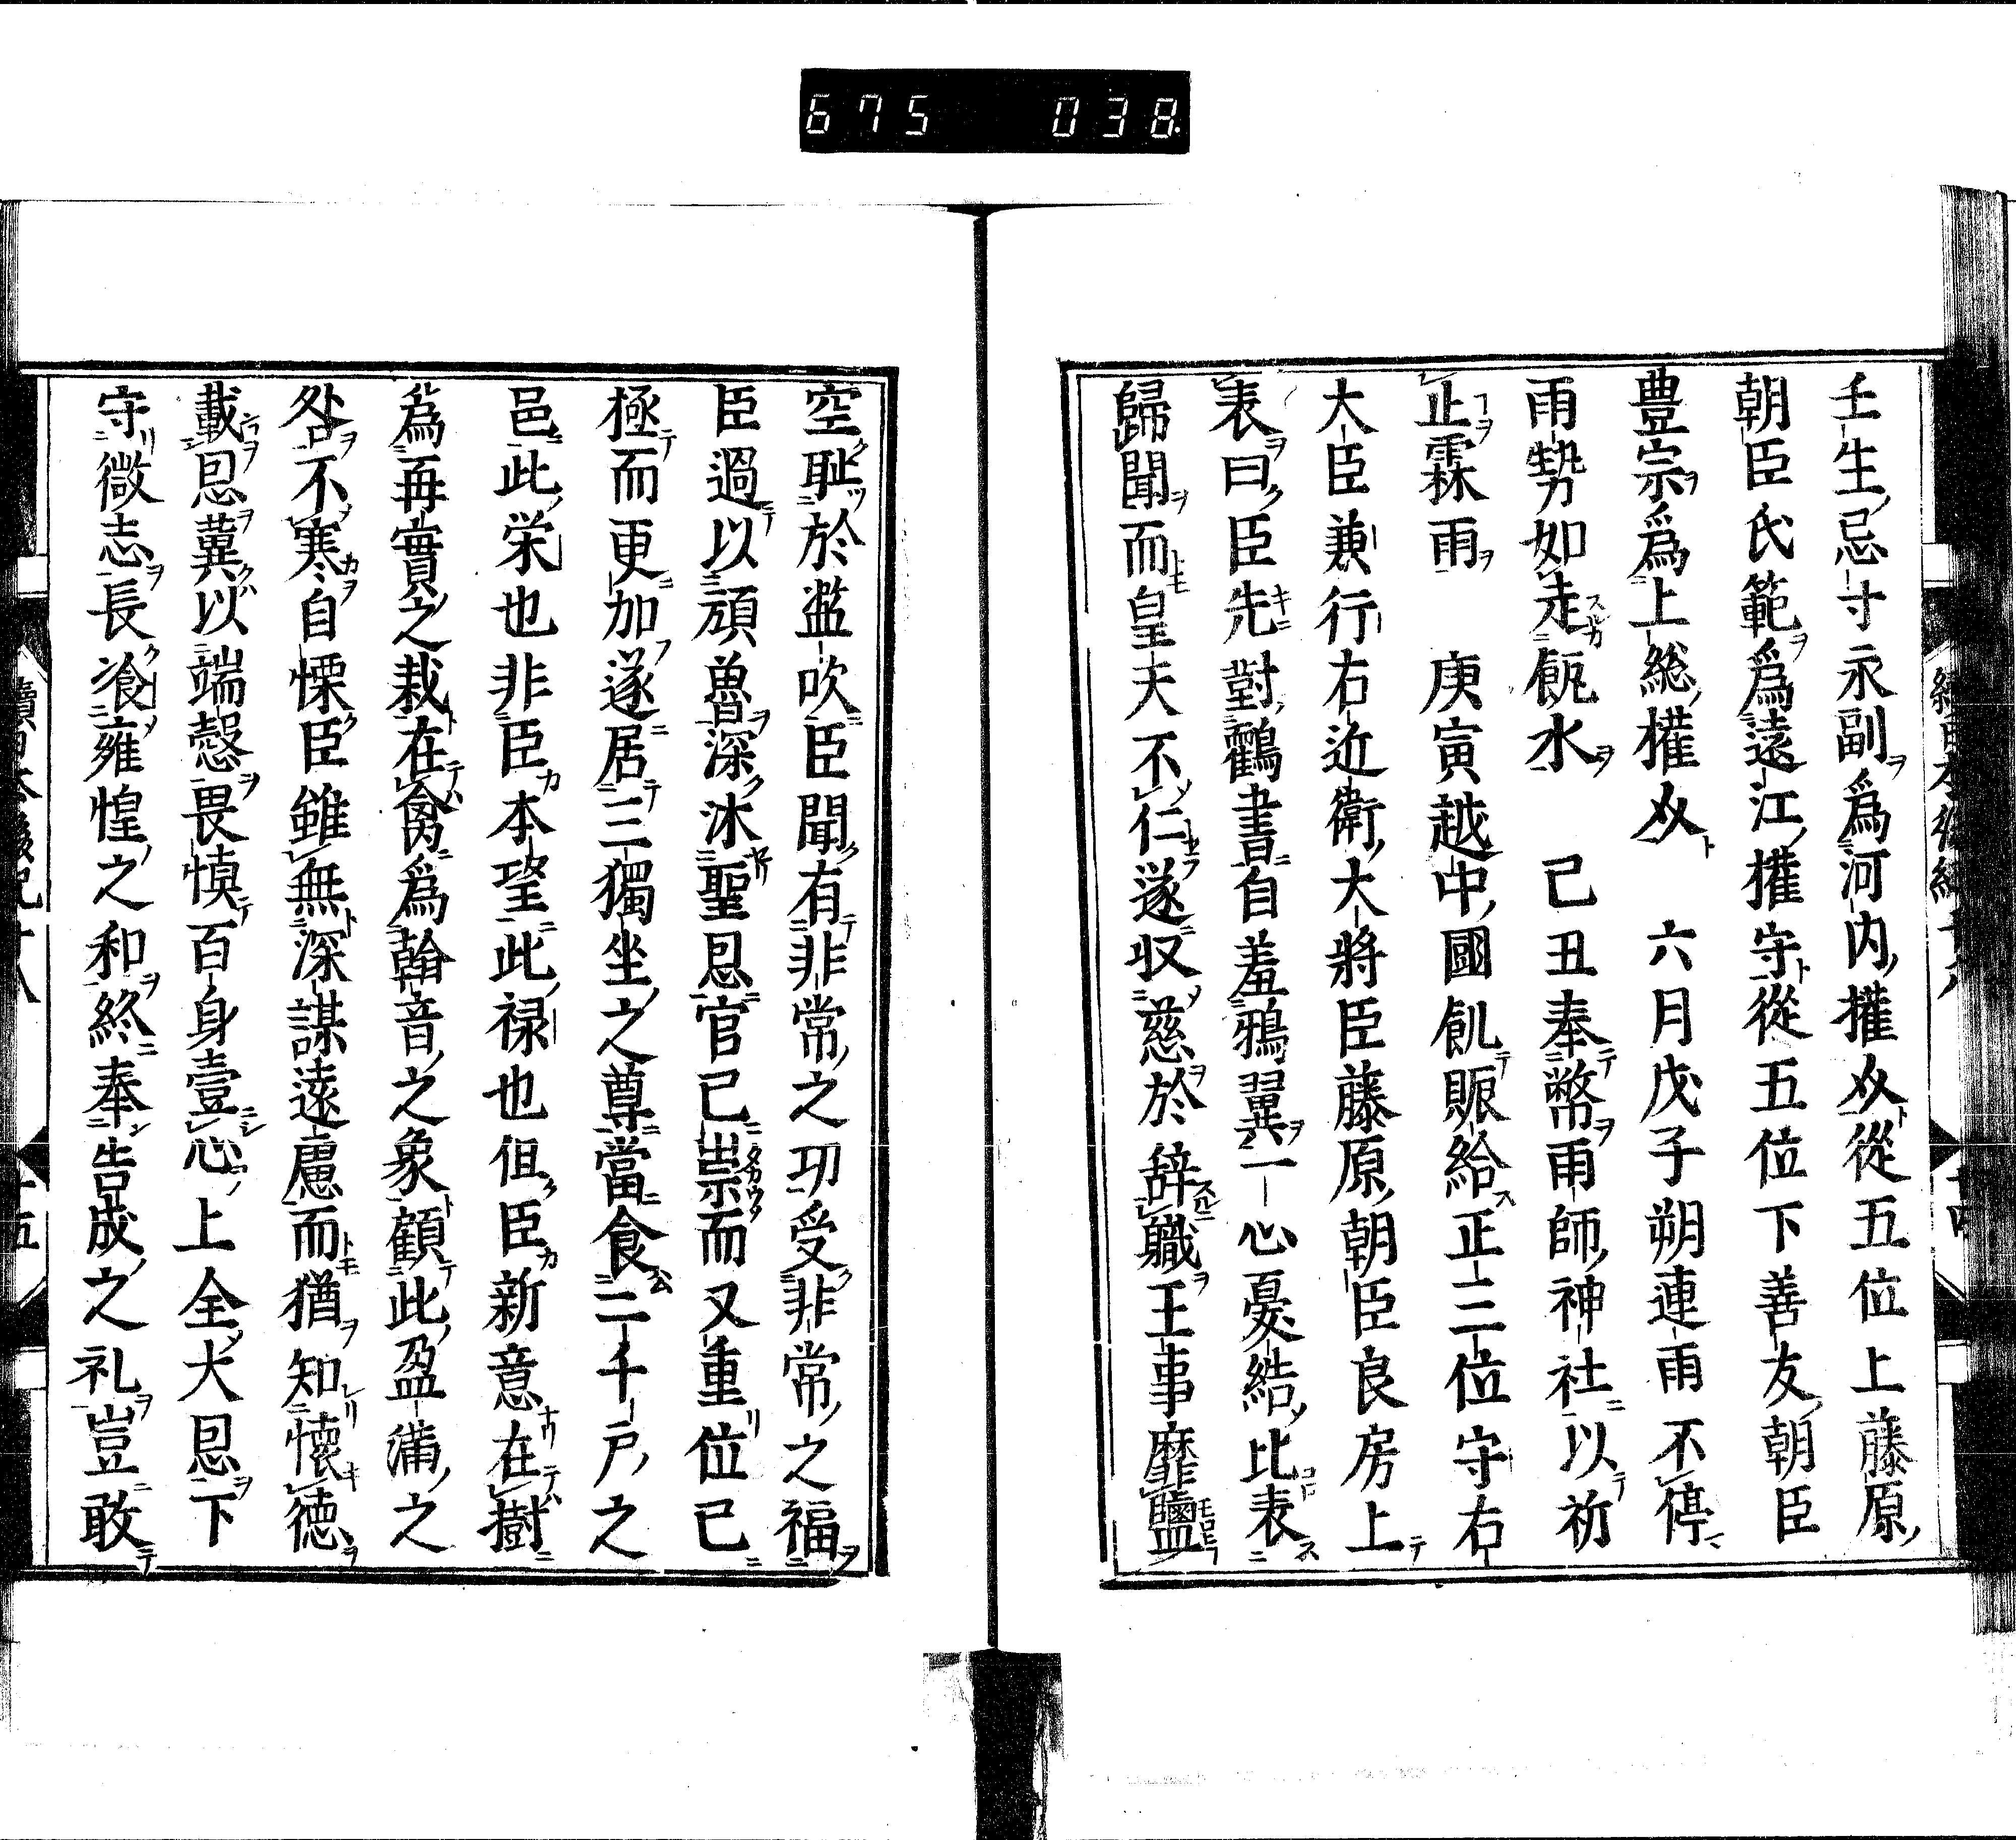 675 038
壬生忌寸永副爲河内權㸚從五位上藤原
朝臣氏範爲遠江權守從五位下善友朝臣
豊宗爲上総權㸚　六月戊子朔連雨不停
雨勢如走瓶水　己丑奉幣雨師神社以祈
止霖雨　庚寅越中國飢賑給正三位守右
大臣兼行右近衛大將臣藤原朝臣良房上
表曰臣先對鶴書自羞鴉翼一心憂結比表
歸聞而皇天不仁遂収慈於辞職王事靡盬
空耻於濫吹臣聞有非常之功受非常之福
臣過以頑魯深沐聖恩官已崇而又重位已
極而更加遂居三獨坐之尊當食二千戸之
邑此栄也非臣本望此禄也但臣新意在樹
爲再實之栽在禽爲翰音之象顧此盈滿之
咎不寒自慄臣雖無深謀遠慮而猶知懷德
載恩冀以端慤畏慎百身壹心上全大恩下
守微志長飡雍惶之和終奉告成之礼豈敢